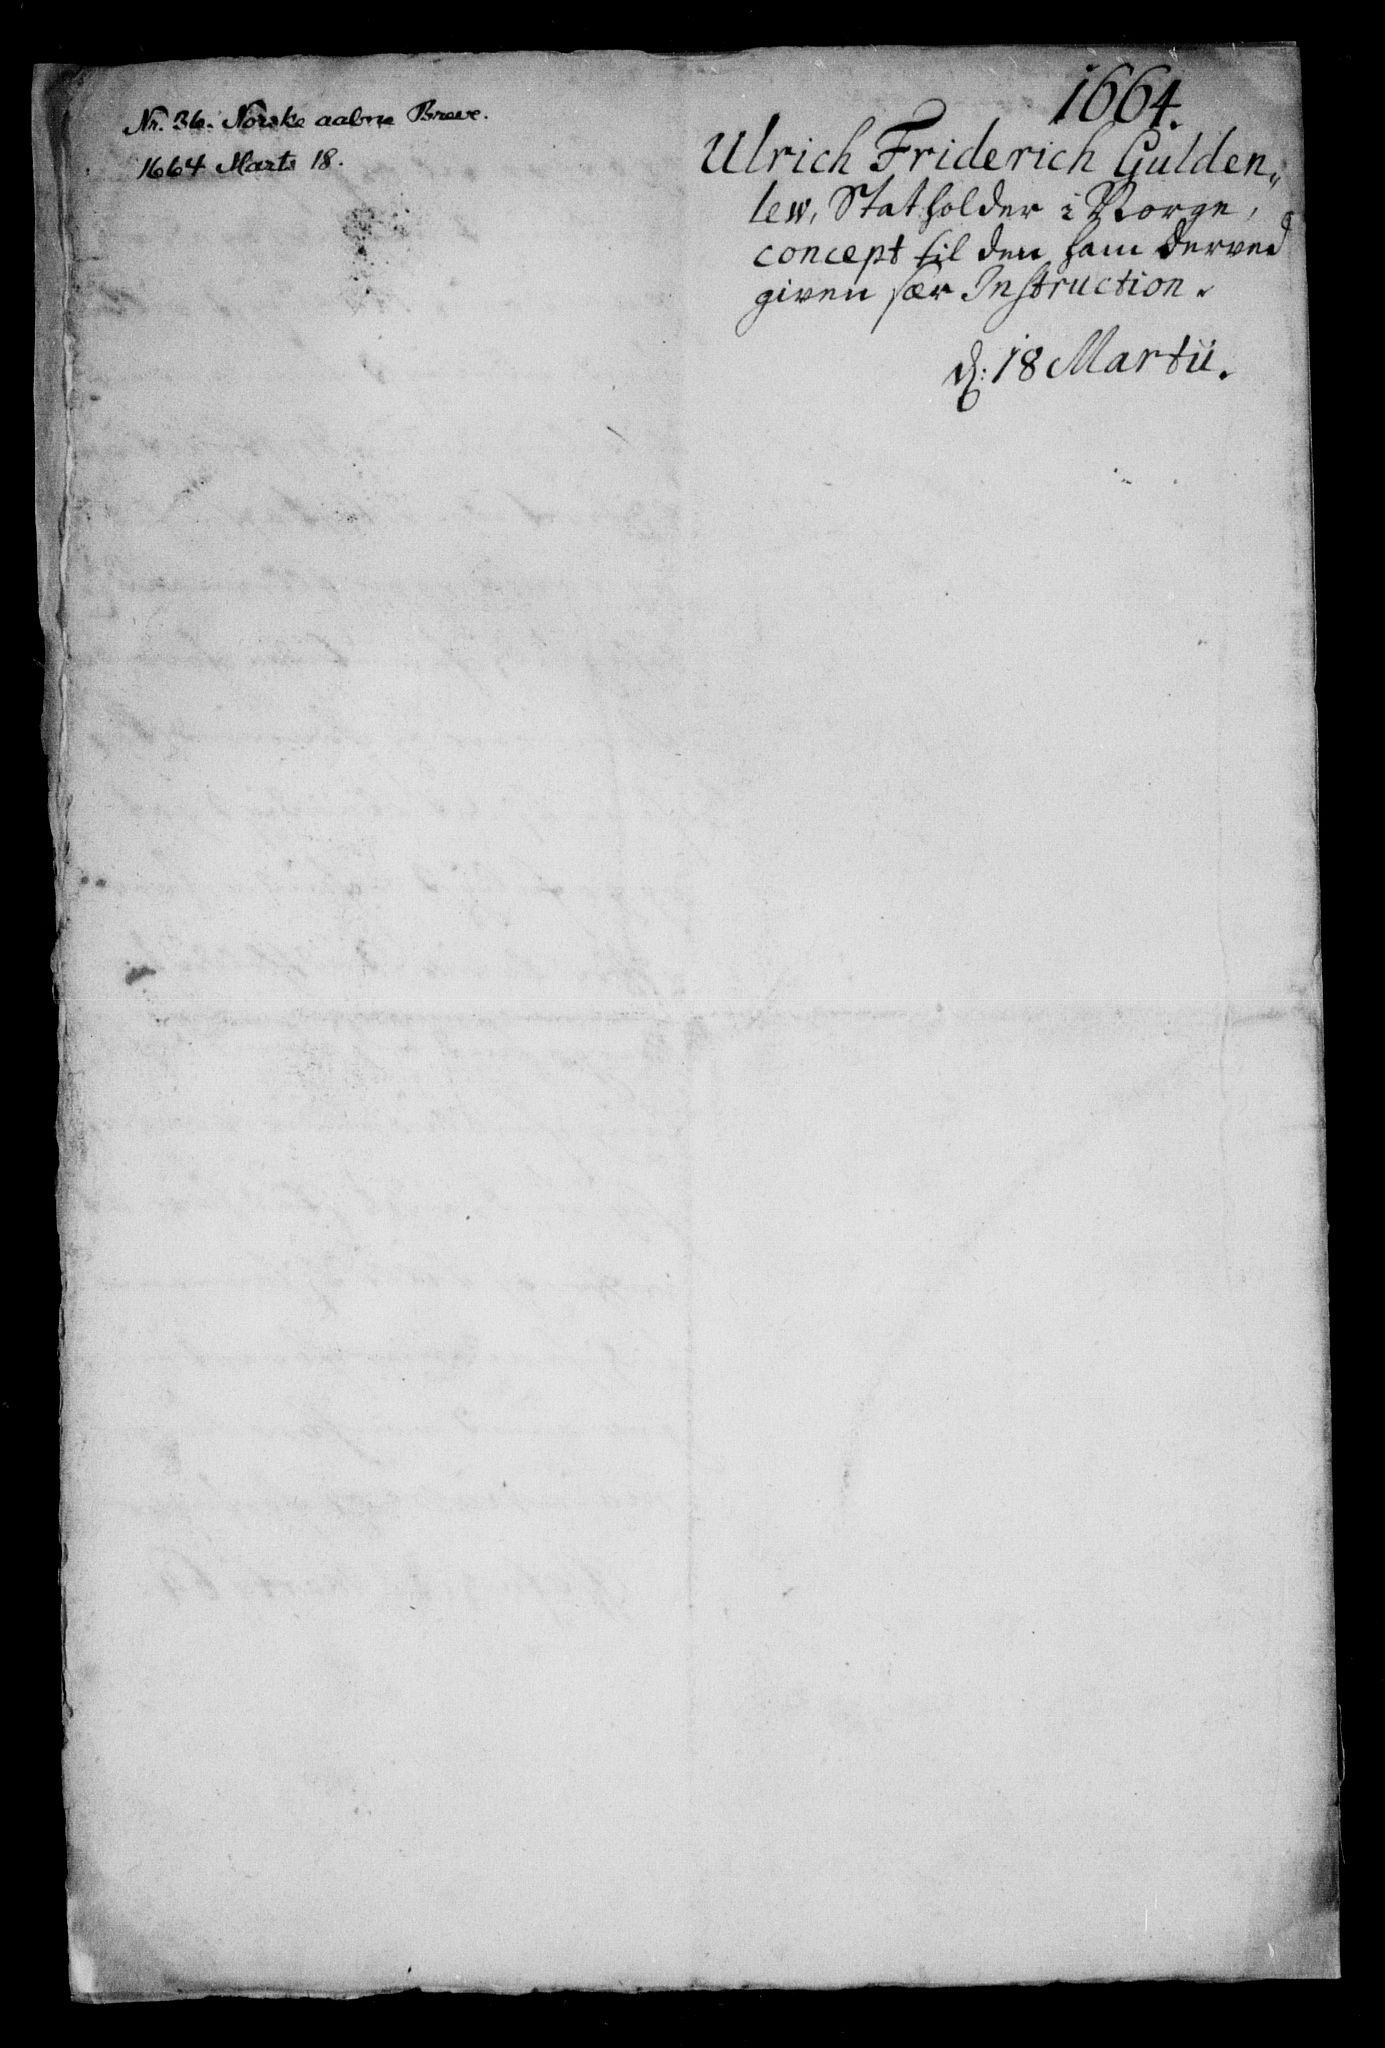 Nr. 36. Norske aabne Breve.
1664 Marts 18.
1664.
Ulrich Friderich Gulden„
lew, Statholder i Norge,
concept til den ham derved
given sær Instruction.
d: 18 Martii.